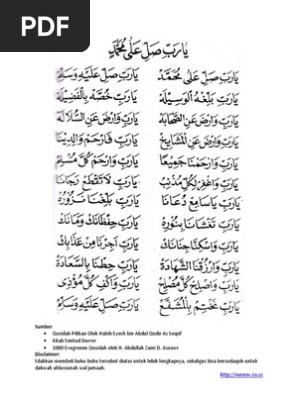 PDF
يَارَبِّ صَلِّ عَلَى مُحَمَّدٍ
يَارَبِّ صَلِّ عَلَى مُحَمَّدْ يَارَبِّ صَلِّ عَلَيْهِ وَسَلِّمْ
يَارَبِّ بَلِّغْهُ الْوَسِيْلَةْ يَارَبِّ خُصَّهُ بِالْفَضِيْلَةْ
يَارَبِّ وَارْضَ عَنِ الصَّحَابَةْ يَارَبِّ وَارْضَ عَنِ السُّلَالَةْ
يَارَبِّ وَارْضَ عَنِ الْمَشَايِخْ يَارَبِّ فَارْحَمْ وَالِدِيْنَا
يَارَبِّ وَارْحَمْنَا جَمِيْعًا يَارَبِّ وَارْحَمْ كُلَّ مُسْلِمْ
يَارَبِّ وَاغْفِرْ لِكُلِّ مُذْنِبْ يَارَبِّ لَاتَقْطَعْ رَجَانَا
يَارَبِّ يَاسَامِعْ دُعَانَا يَارَبِّ بَلِّغْنَا نَزُوْرُهْ
يَارَبِّ تَغْشَانَا بِنُوْرِهْ يَارَبِّ حِفْظَانَكْ وَمَانَكْ
يَارَبِّ وَاسْكِنَّا جِنَانَكْ يَارَبِّ اَجِرْنَا مِنْ عَذَابِكْ
يَارَبِّ وَارْزُقْنَا الشَّهَادَةْ يَارَبِّ حِطْنَا بِالسَّعَادَةْ
يَارَبِّ وَاصْلِحْ كُلَّ مُصْلِحْ يَارَبِّ وَاكْفِ كُلَّ مُؤْذِى
يَارَبِّ نَخْتِمْ بِالْمُشَفَّعْ يَارَبِّ صَلِّ عَلَيْهِ وَسَلِّمْ
Sumber
• Qosidah Pilihan Oleh Habib Syech bin Abdul Qodir As Seqaf
• Kitab Simtud Durror
• 1000 Evegreen Qosidah oleh H. Abdullah Zaini D. Asnawi
Disclaimer:
Silahkan membeli buku-buku tersebut diatas untuk lebih lengkapnya, sekaligus bisa bersedaqoh untuk
dakwah ahlussunah wal jamaah.